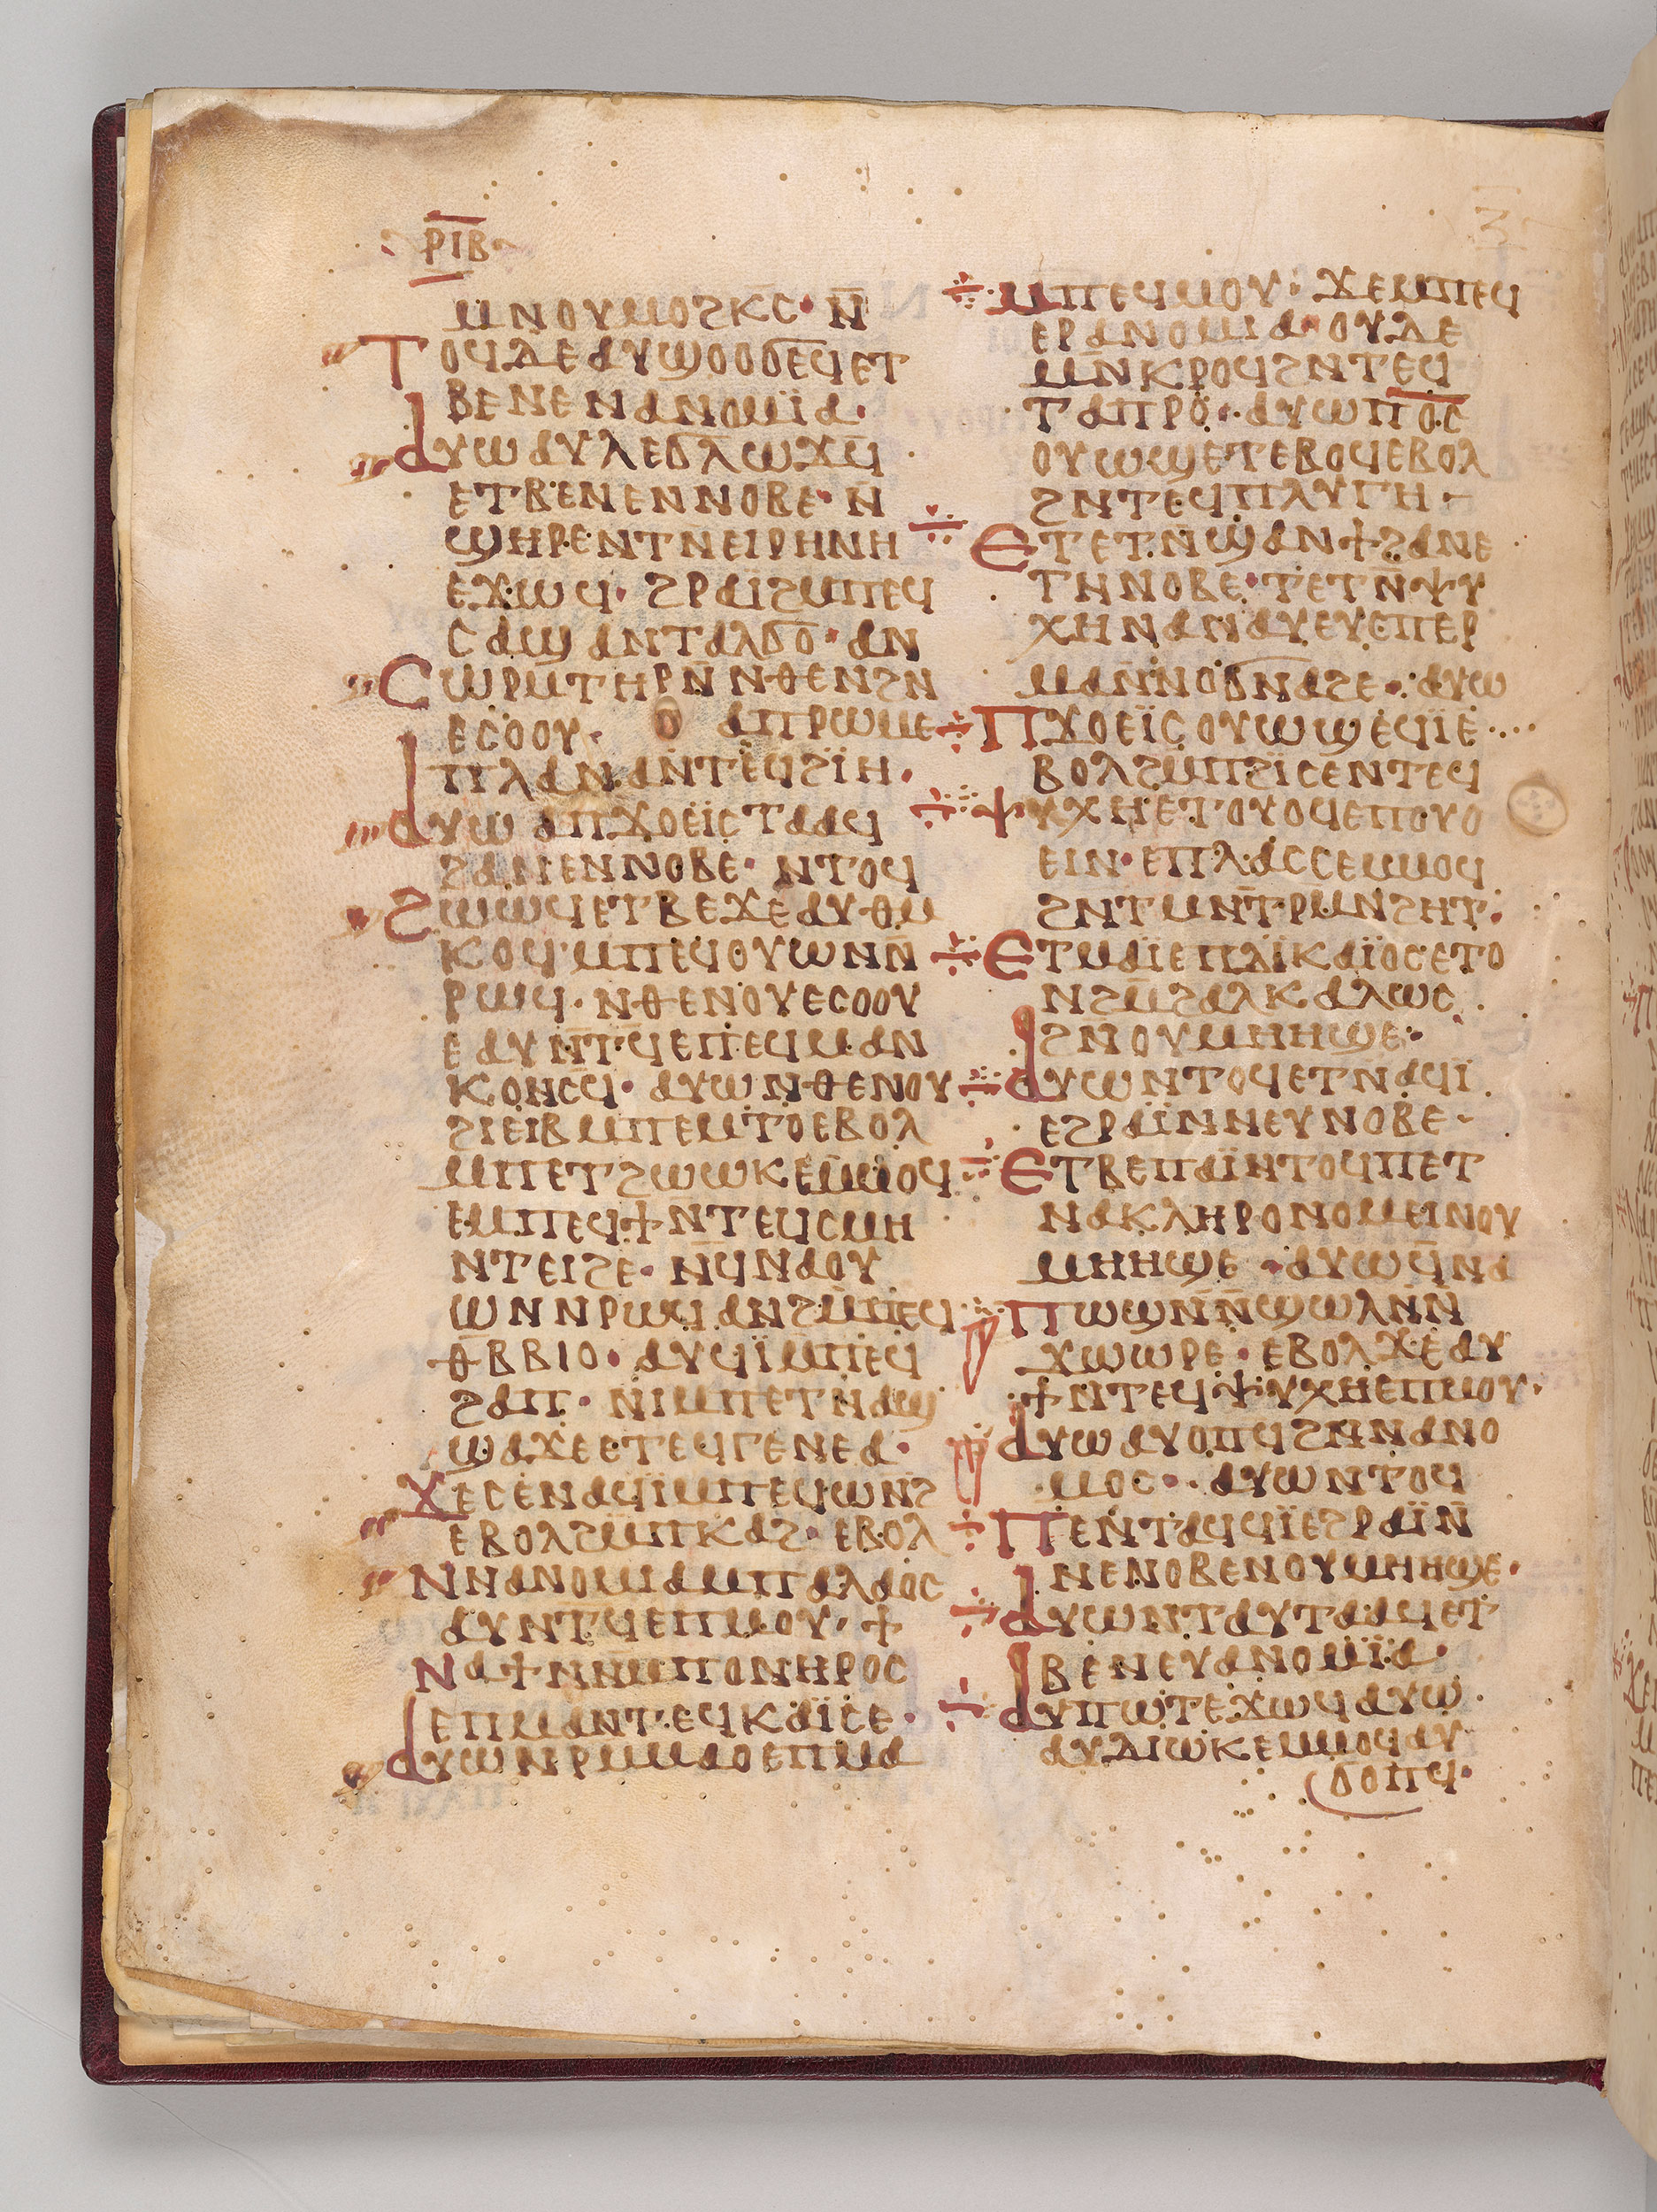 ⲢⲒⲂ
ⲘⲚⲞⲨⲘⲞϨⲔⲤ· Ⲛ̄
ⲦⲞϤⲆⲈⲀⲨϢⲞⲞϬⲈϤⲈⲦ
ⲂⲈⲚⲈⲚⲀⲚⲞⲘⲒ̈Ⲁ·
ⲀⲨⲰⲀⲨⲖⲈϬⲖⲰϪϤ·
ⲈⲦⲂⲈⲚⲈⲚⲚⲞⲂⲈ· Ⲛ̄
ϢⲎⲢⲈⲚⲦⲚⲈⲒⲢⲎⲚⲎ
ⲈϪⲰϤ· ϨⲢⲀⲒ̈ϨⲘⲠⲈϤ
ⲤⲀϢⲀⲚⲦⲀⲖϬⲞ· ⲀⲚ
ⲤⲰⲢⲘⲦⲎⲢⲚ̄ⲚⲐⲈⲚϨⲚ
ⲈⲤⲞⲞⲨ· ⲀⲠⲢⲰⲘⲈ
ⲠⲖⲀⲚⲀⲚⲦⲈϤϨⲒ̈Ⲏ·
ⲀⲨⲰⲀⲠϪⲞⲈⲒ̈ⲤⲦⲀⲀϤ
ϨⲀⲚⲈⲚⲚⲞⲂⲈ· ⲚⲦⲞϤ
ϨⲰⲰϤⲈⲦⲂⲈϪⲈⲀⲨⲐⲘ
ⲔⲞϤ·ⲘⲠⲈϤⲞⲨⲰⲚⲚ̄
ⲢⲰϤ· ⲚⲐⲈⲚⲞⲨⲈⲤⲞⲞⲨ
ⲈⲀⲨⲚ̄ⲦϤⲈⲠⲈϤⲘⲀⲚ
ⲔⲞⲚⲤϤ· ⲀⲨⲰⲚⲐⲈⲚⲞⲨ
ϨⲒⲈⲒⲂⲘⲠⲈⲘⲦⲞⲈⲂⲞⲖ
ⲘⲠⲈⲦϨⲰⲰⲔⲈⲘ̄ⲘⲞϤ·
ⲈⲘⲠⲈϤϮⲚ̄ⲦⲈϤⲤⲘⲎ
ⲚⲦⲈⲒϨⲈ· Ⲛ̄ϤⲚⲀⲞⲨ
ⲰⲚⲚⲢⲰϤⲀⲚϨⲘ̄ⲠⲈϤ
ⲐⲂⲂⲒⲞ· ⲀⲨϤⲒ̈ⲘⲠⲈϤ
ϨⲀⲠ· ⲚⲒⲘⲠⲈⲦⲚⲀϢ
ϢⲀϪⲈⲈⲦⲈϤⲄⲈⲚⲈⲀ·
ϪⲈⲤⲈⲚⲀϤⲒ̈ⲘⲠⲈϤⲰⲚϨ
ⲈⲂⲞⲖϨⲘ̄ⲠⲔⲀϨ· ⲈⲂⲞⲖ
ⲚⲚⲀⲚⲞⲘⲒⲀⲘⲠⲀⲖⲀⲞⲤ
ⲀⲨⲚⲦϤⲈⲠⲘⲞⲨ· Ϯ
ⲚⲀϮⲚⲚⲘⲠⲞⲚⲎⲢⲞⲤ
ⲈⲠⲘⲀⲚⲦⲈϤⲔⲀⲒ̈ⲤⲈ·
ⲀⲨⲰⲚⲢⲘⲘⲀⲞⲈⲠⲘⲀ
ⲘⲠⲈϤⲘⲞⲨ· ϪⲈⲘⲠⲈϤ
ⲈⲢⲀⲚⲞⲘⲒⲀ· ⲞⲨⲆⲈ
ⲘⲚ̄ⲔⲢⲞϤϨⲚⲦⲈϤ
ⲦⲀⲠⲢⲞ· ⲀⲨⲰⲠⲞ̄Ⲥ̄
ⲞⲨⲰϢⲈⲦⲈⲂⲞϤⲈⲂⲞⲖ
ϨⲚⲦⲈϤⲠⲖⲨⲄⲎ·
ⲈⲦⲈⲦⲚ̄ϢⲀⲚϮϨⲀⲚⲈ
ⲦⲎⲚⲞⲂⲈ· ⲦⲈⲦⲚ̄ⲮⲨ
ⲬⲎⲚⲀⲚⲀⲨⲈⲨⲈⲠⲈⲢ
ⲘⲀⲚⲚⲞϬⲚⲀϨⲈ· ⲀⲨⲰ
ⲠϪⲞⲈⲒ̈ⲤⲞⲨⲰϢⲈϤⲒ̈Ⲉ
ⲂⲞⲖϨⲘⲠϨⲒⲤⲈⲚⲦⲈϤ
ⲮⲨⲬⲎⲈⲦⲞⲨⲞϤⲈⲠⲞⲨⲞ
ⲈⲒⲚ· ⲈⲠⲖⲀⲤⲤⲈⲘⲘⲞϤ
ϨⲚⲦⲘⲚ̄ⲦⲢⲘⲚϨⲎⲦ·
ⲈⲦⲘⲀⲒ̈ⲈⲠⲆⲒ̈ⲔⲀⲒ̈ⲞⲤⲈⲦⲞ
ⲚϨⲘ̄ϨⲀⲖⲔⲀⲖⲰⲤ
ϨⲚ̄ⲞⲨⲘⲎⲎϢⲈ·
ⲀⲨⲰⲚⲦⲞϤⲈⲦⲚⲀϤⲒ̈
ⲈϨⲢⲀⲒ̈ⲚⲚⲈⲨⲚⲞⲂⲈ·
ⲈⲦⲂⲈⲠⲀⲒ̈ⲚⲦⲞϤⲠⲈⲦ
ⲚⲀⲔⲖⲎⲢⲞⲚⲞⲘⲈⲒⲚⲞⲨ
ⲘⲎⲎϢⲈ· ⲀⲨⲰϤ̄ⲚⲀ
ⲠⲰϢⲚ̄Ⲛ̄ϢⲰⲖⲚ̄Ⲛ
ϪⲰⲰⲢⲈ· ⲈⲂⲞⲖϪⲈⲀⲨ
ϮⲚⲦⲈϤⲮⲨⲬⲎⲈⲠⲘⲞⲨ·
ⲀⲨⲰⲀⲨⲞⲠϤϨⲚⲚⲀⲚⲞ
ⲘⲞⲤ· ⲀⲨⲰⲚⲦⲞϤ
ⲠⲈⲚⲦⲀϤϤⲒ̈ⲈϨⲢⲀⲒ̈Ⲛ̄
ⲚⲈⲚⲞⲂⲈⲚⲞⲨⲘⲎⲎϢⲈ·
ⲀⲨⲰⲚⲦⲀⲨⲦⲀⲀϤⲈⲦ
ⲂⲈⲚⲈⲨⲀⲚⲞⲘⲒ̈Ⲁ·
ⲀⲨⲠⲰⲦⲈϪⲰϤⲀⲨⲰ
ⲀⲨⲆⲒⲰⲔⲈⲘⲘⲞϤⲀⲨ
ϬⲞⲠϤ·